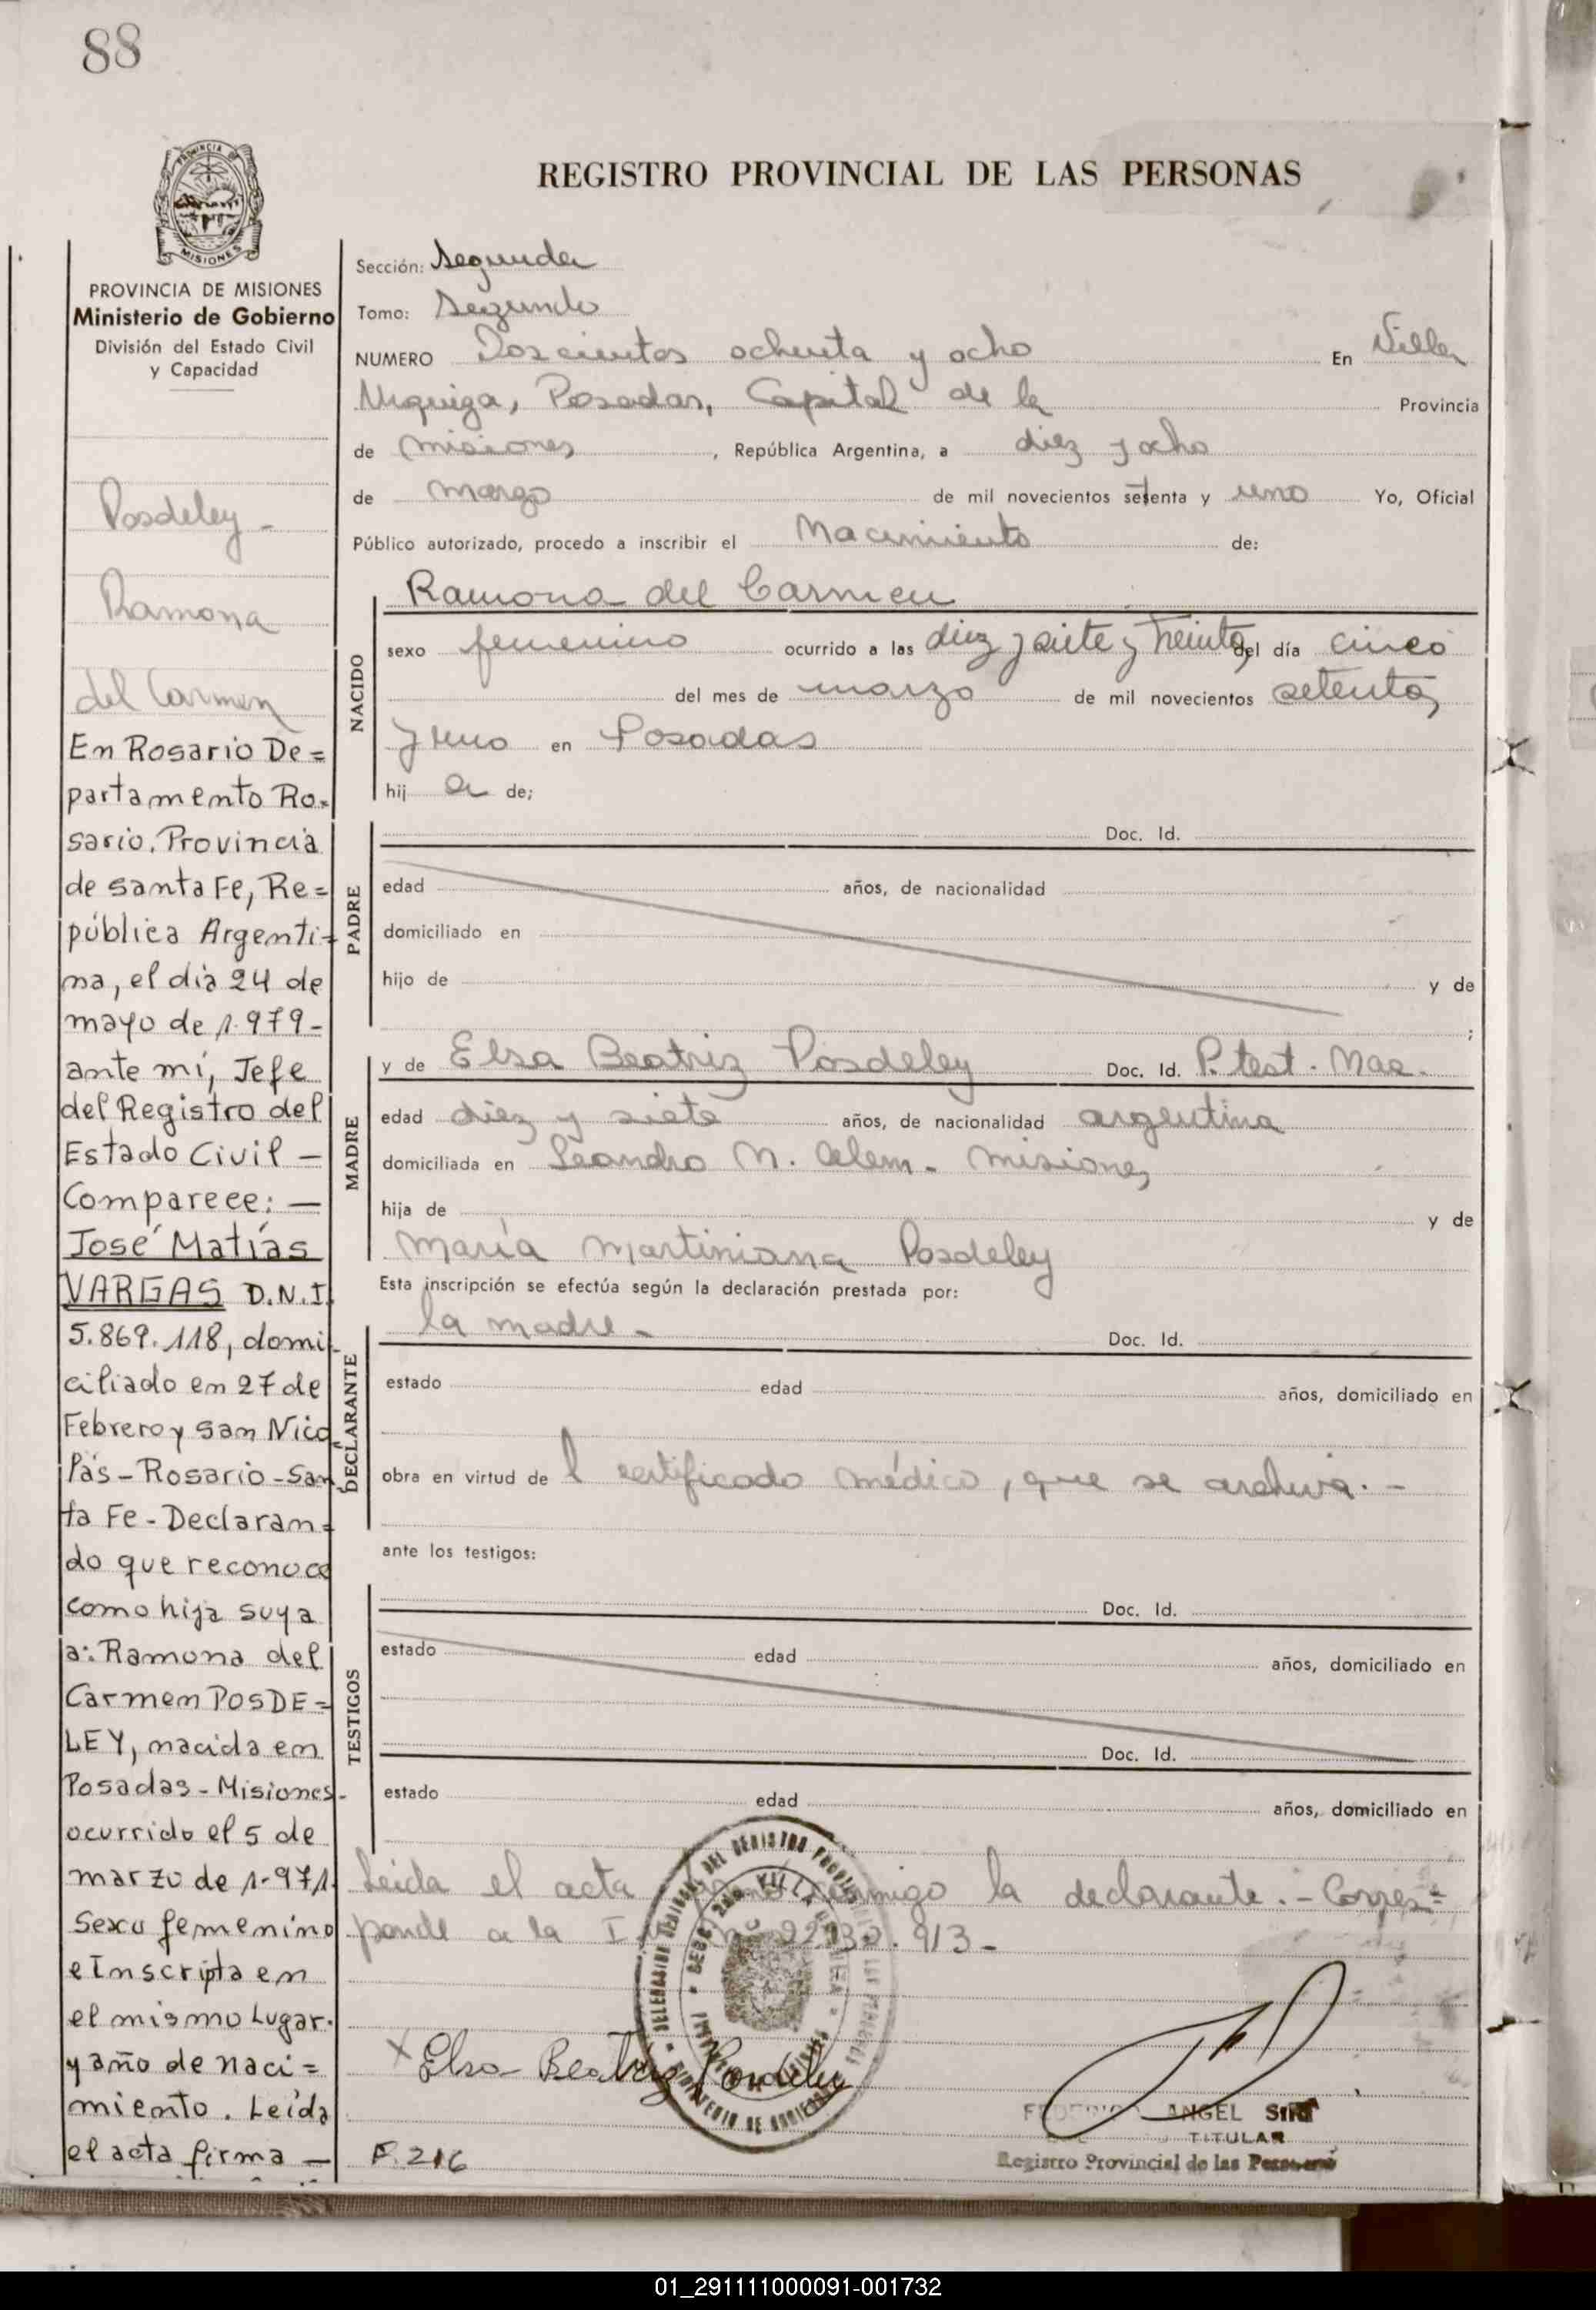 88
PROVINCIA DE
MISIONES
REGISTRO PROVINCIAL DE LAS PERSONAS
PROVINCIA DE MISIONES
Ministerio de Gobierno
División del Estado Civil
y Capacidad
Posdeley -
Ramona
del Carmen
En Rosario De=
partamento Ro=
sario. Provincia
de Santa Fe, Re=
pública Argenti=
na, el día 24 de
mayo de 1.979-
ante mí, Jefe
del Registro del
Estado Civil -
Comparece: -
José Matías
VARGAS D.N.I.
5.869.118, domi-
ciliado en 27 de
Febrero y San Nico
lás - Rosario - San
ta Fe - Declaran=
do que reconoce
como hija suya
a: Ramona del
Carmen POSDE=
LEY, nacida en
Posadas - Misiones -
ocurrido el 5 de
marzo de 1.971.
Sexo femenino
e Inscripta en
el mismo Lugar.
y año de naci=
miento. Leída
el acta firma -
Sección: Segunda
Tomo: Segundo
NUMERO Doscientos ochenta y ocho En Villa
Urquiza, Posadas, Capital de la Provincia
de Misiones, República Argentina, a diez y ocho
de marzo de mil novecientos setenta y uno Yo, Oficial
Público autorizado, procedo a inscribir el Nacimiento de:
NACIDO
Ramona del Carmen
sexo femenino ocurrido a las diez y siete y treinta, del día cinco
del mes de marzo de mil novecientos setenta
y uno en Posadas
hij a de;
PADRE
Doc. Id.
edad años, de nacionalidad
domiciliado en
hijo de y de
;
MADRE
y de Elsa Beatriz Posdeley Doc. Id. P. test. Nac.
edad diez y siete años, de nacionalidad argentina
domiciliada en Leandro N. Alem - Misiones
hija de y de
María Martiniana Posdeley
Esta inscripción se efectúa según la declaración prestada por:
DECLARANTE
la madre - Doc. Id.
estado edad años, domiciliado en
obra en virtud de l certificado médico, que se archiva. -
ante los testigos:
TESTIGOS
Doc. Id.
estado edad años, domiciliado en
Doc. Id.
estado edad años, domiciliado en
Leida el acta conmigo la declarante. - Corres=
ponde a la 913 -
X Elsa Beatriz Posdeley
ANGEL
TITULAR
Registro Provincial de las Personas
F. 216
01_291111000091-001732